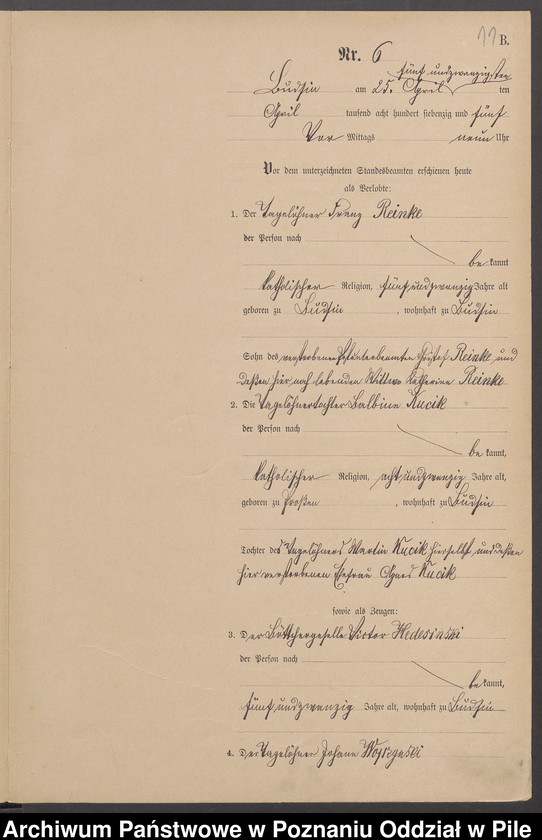 11 B.
Nr. 6
fünf und zwanzigsten
Budsin am 25. April ten
April tausend acht hundert siebenzig und fünf
Vor Mittags neun Uhr
Vor dem unterzeichneten Standesbeamten erschienen heute
als Verlobte:
1. Der Tagelöhner Franz Reinke
der Person nach
be kannt
katholischer Religion, fünf und zwanzig Jahre alt
geboren zu Budsin, wohnhaft zu Budsin
Sohn des verstorbenen Gustof Reinke und
deßen hier noch lebenden Wittwe Katharina Reinke
2. Die Tagelöhnertochter Balbine Kucik
der Person nach
be kannt,
katholischer Religion, acht und zwanzig Jahre alt,
geboren zu Proßen, wohnhaft zu Budsin
Tochter des Tagelöhners Martin Kucik hierselbst und deßen
hier verstorbenen Ehefrau Agnes Kucik
sowie als Zeugen:
3. Der Böttchergeselle Victor Hedesinski
der Person nach
be kannt,
fünf und zwanzig Jahre alt, wohnhaft zu Budsin
4. Der Tagelöhner Johann
Archiwum Państwowe w Poznaniu Oddział w Pile